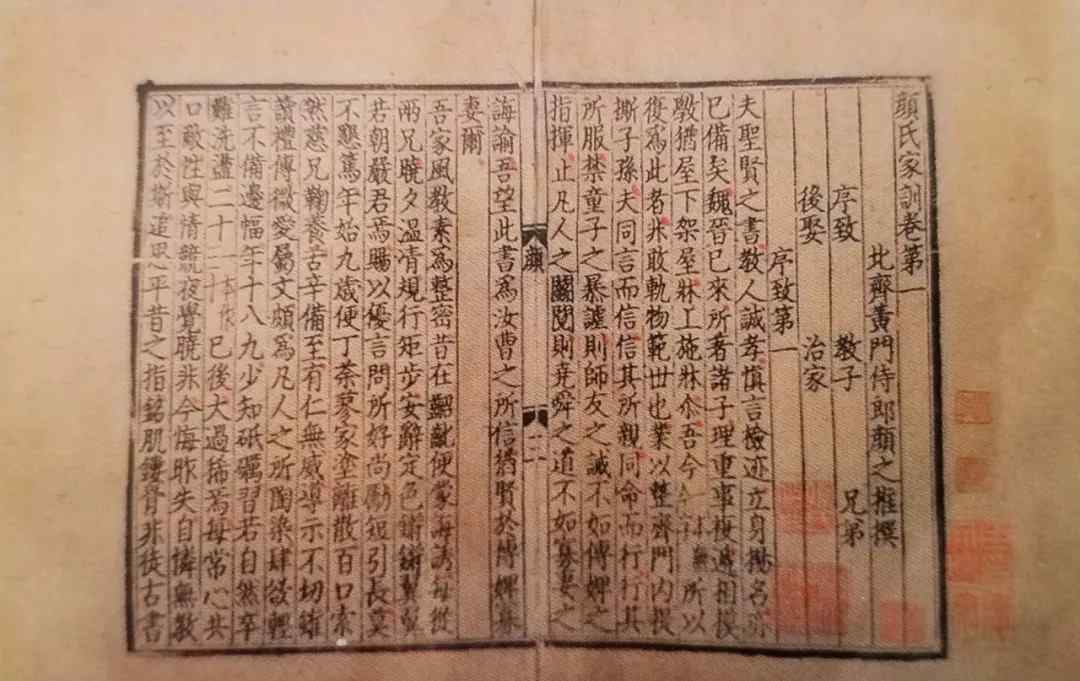 顔氏家訓卷第一
北齊黃門侍郎顔之推撰
序致 教子 兄弟
後娶 治家
序致第一
夫聖賢之書教人誠孝慎言檢迹立身揚名亦
已備矣魏晉已來所著諸子理重事複遞相模
斆猶屋下架屋牀上施牀尒吾今 所以
復爲此者非敢軌物範世也業以整齊門內提
撕子孫夫同言而信信其所親同命而行行其
所服禁童子之暴謔則師友之誡不如傅婢之
指揮止凡人之鬬鬩則堯舜之道不如寡妻之
誨諭吾望此書爲汝曹之所信猶賢於傅婢寡
妻爾
吾家風教素爲整密昔在齠齔便蒙誨誘每從
兩兄曉夕温凊規行矩步安辭定色鏘鏘翼翼
若朝嚴君焉賜以優言問所好尚勵短引長莫
不懇篤年始九歲便丁荼蓼家塗離散百口索
然慈兄鞠養苦辛備至有仁無威導示不切雖
讀禮傳微愛屬文頗爲凡人之所陶染肆欲輕
言不備邊幅年十八九少知砥礪習若自然卒
難洗盪二十 已後大過稀焉每常心共
口敵性與情競夜覺曉非今悔昨失自憐無教
以至於斯追思平昔之指銘肌鏤骨非徒古書
顔